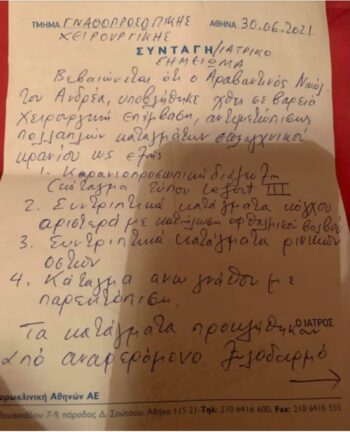 ΤΜΗΜΑ ΓΝΑΘΟΠΡΟΣΩΠΙΚΗΣ ΑΘΗΝΑ 30.06.2021
ΧΕΙΡΟΥΡΓΙΚΗΣ
ΣΥΝΤΑΓΗ/ΙΑΤΡΙΚΟ
ΣΗΜΕΙΩΜΑ
Βεβαιώνεται ότι ο Αραβαντινός Νικόλ.
του Ανδρέα, υποβλήθηκε χθες σε βαρειά
Χειρουργική Επέμβαση, αντιμετώπισης
πολλαπλών καταγμάτων σπλαχνικού
κρανίου ως εξής
1. Κρανιοπροσωπική διάσταση
(κάταγμα τύπου Lefort III
2. Συντριπτικά κατάγματα κόγχου
αριστερά με καθήλωση οφθαλμικού βολβού
3. Συντριπτικά κατάγματα ρινικών
οστών
4. Κάταγμα άνω γνάθου με
παρεκτόπιση.
Τα κατάγματα προκλήθηκαν
Ο ΙΑΤΡΟΣ
από αναφερόμενο ξυλοδαρμό
Ευρωκλινική Αθηνών ΑΕ
Αθανασιάδου 7-9, πάροδος Δ. Σούτσου, Αθήνα 115 21-Τηλ: 210 6416 600, Fax: 210 6416 555